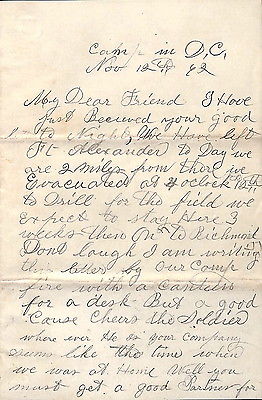 Camp in D.C.
Nov 12th 62
My Dear Friend I Have
just Received your good
let to Night, We Have left
Ft Alexander to Day we
are 2 miles from there we
Evacuated at 2 oclock
to Drill for the field we
Expect to stay Here 3
weeks then On to Richmond
Dont laugh I am writing
this letter by Our Camp
fire with a Canteen
for a desk But a good
Cause Cheers the Soldier
where ever He is Your Company
seems like the time when
we was at Home Well you
must get a good Partner for